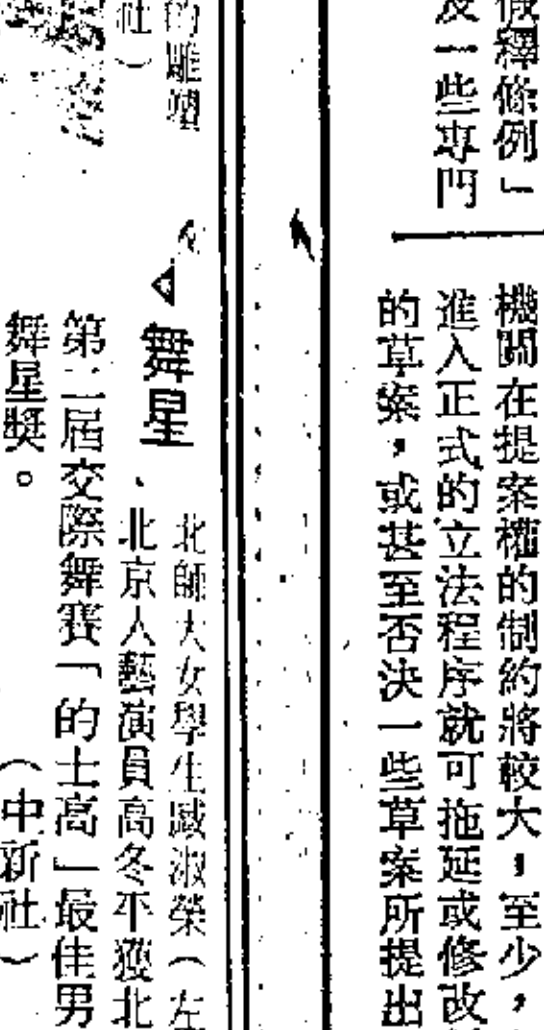 假釋條例」
及一些專門
機關在提案權的制約將較大，至少，
進入正式的立法程序就可拖延或修改
的草案，或甚至否決一些草案所提出
的雕塑
社）
舞星
北師大女學生臧淑榮（左
、北京人藝演員高冬平獲北
第二屆交際舞賽「的士高」最佳男
舞星獎。
（中新社）